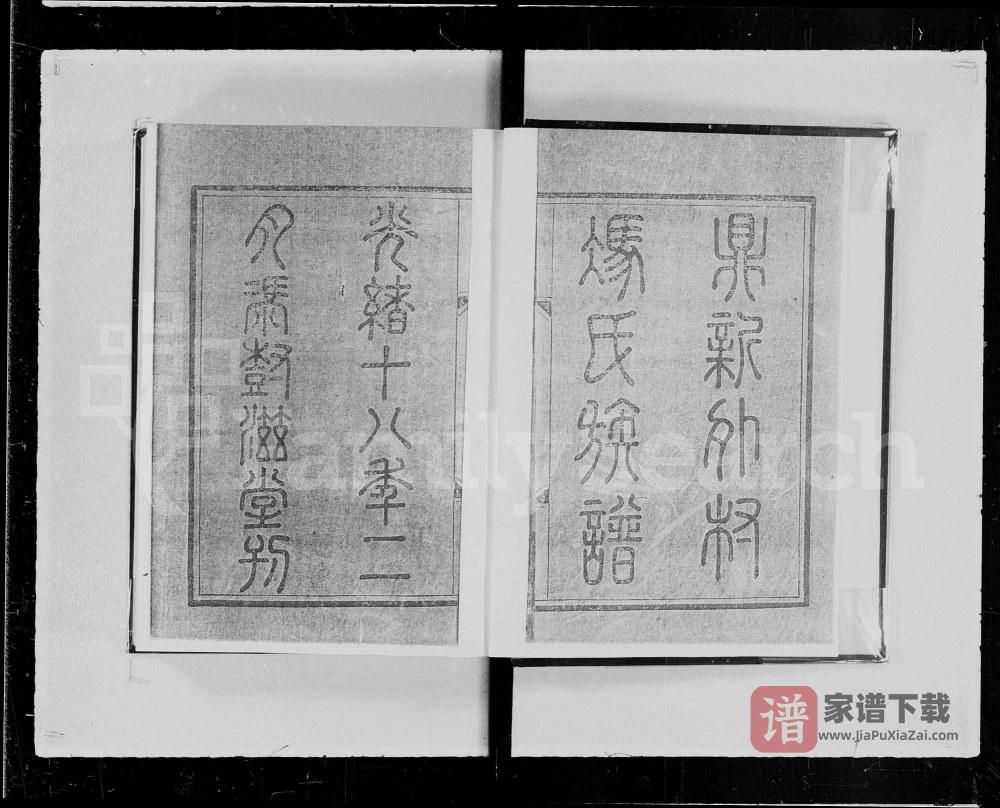 鼎新外村
馮氏族譜
光緒十八年二
月樹滋堂刊
FamilySearch
谱 家谱下载
www.JiaPuXiaZai.com